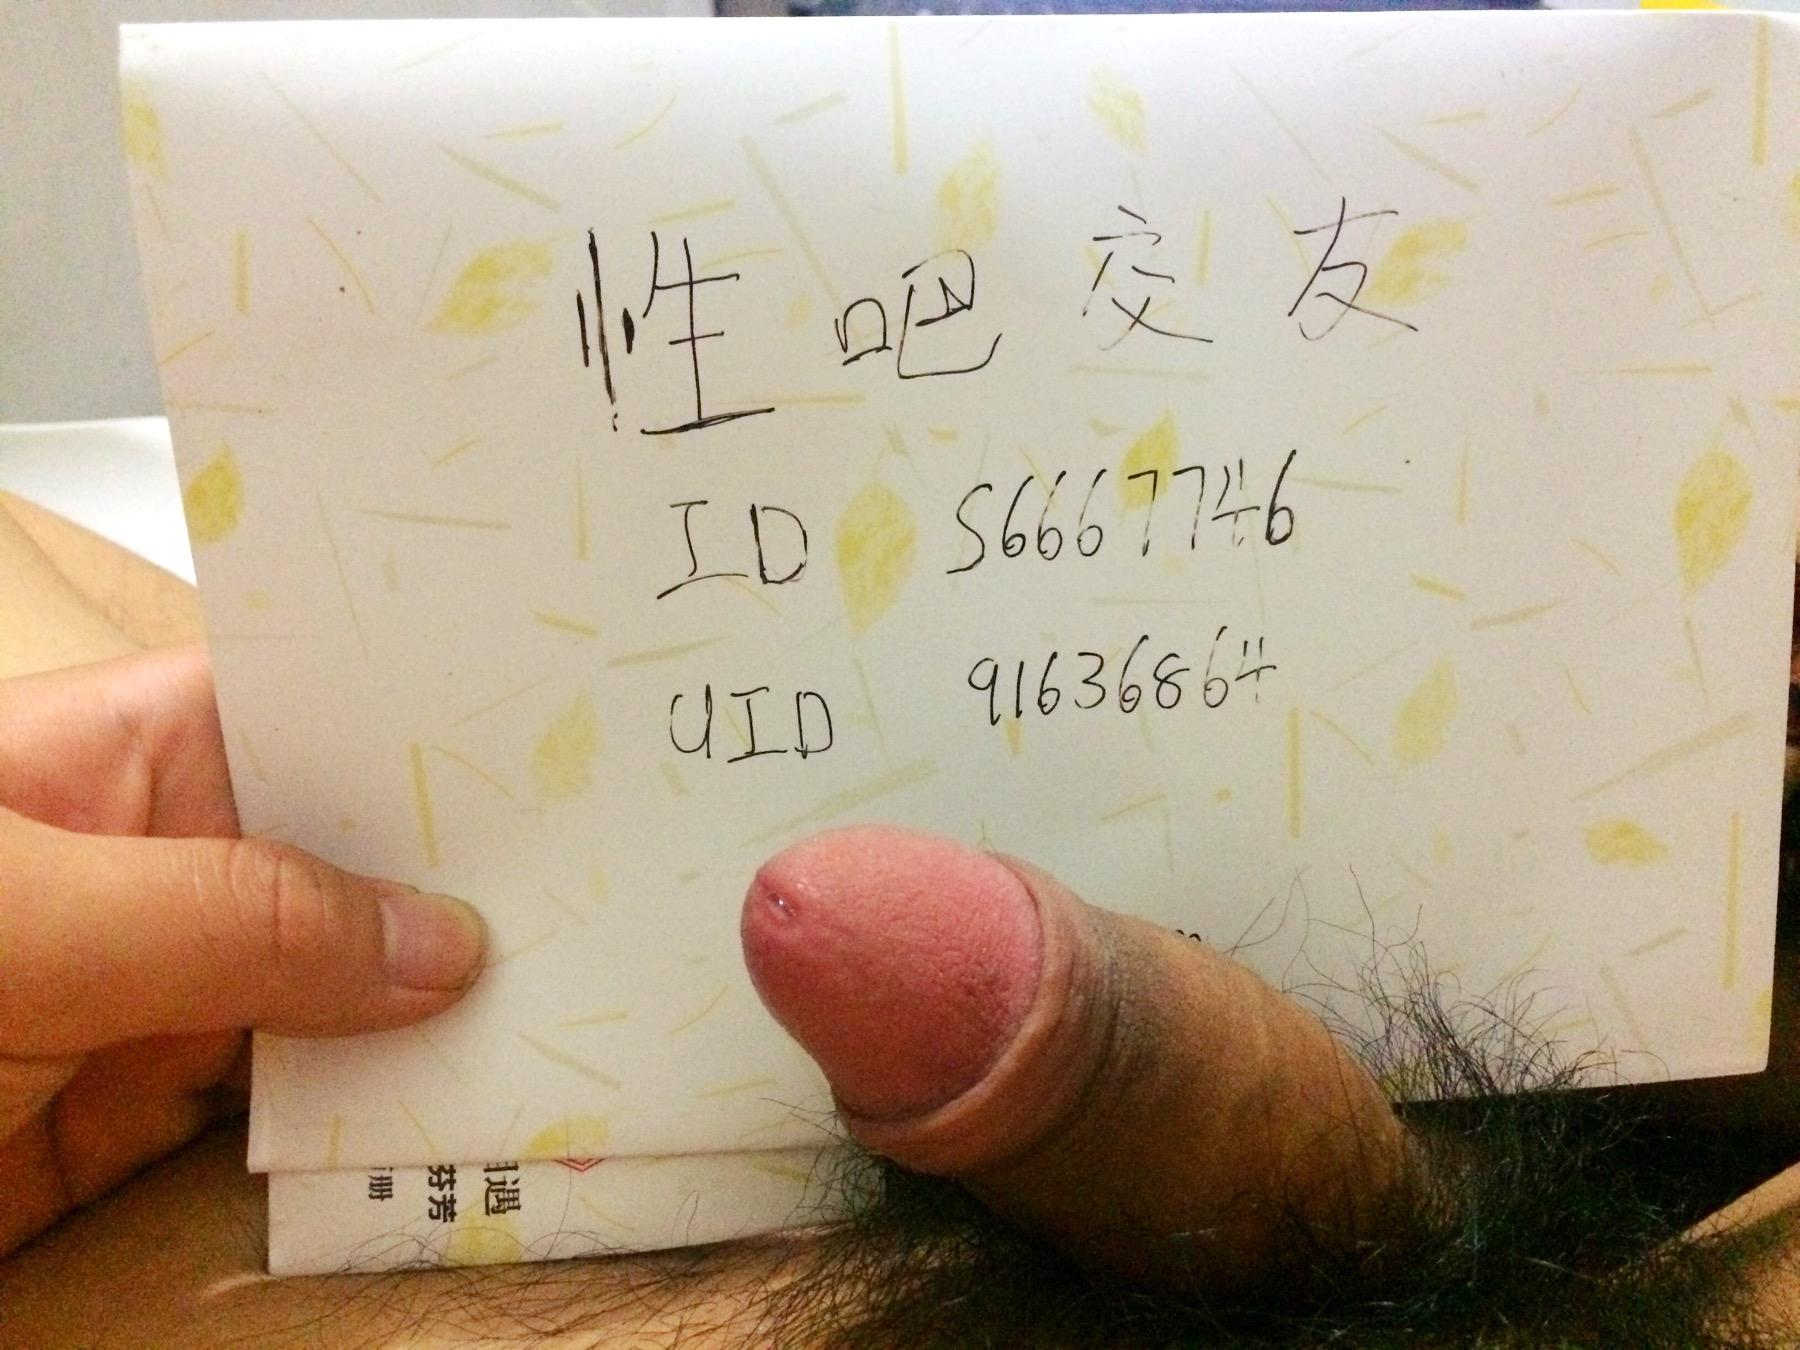 性吧交友
ID S6667746
UID 91636864
相遇
芬芳
册